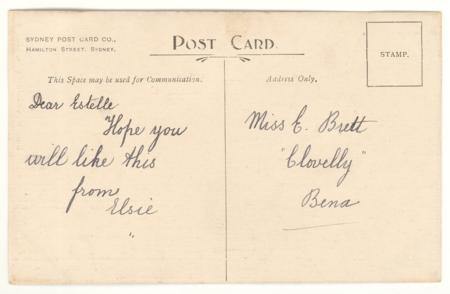 SYDNEY POST CARD CO.,
HAMILTON STREET, SYDNEY.
POST CARD.
STAMP.
This Space may be used for Communication.
Address Only.
Dear Estelle
"Hope you
will like this
from
Elsie
"
Miss E. Brett
"Clovelly"
Bena